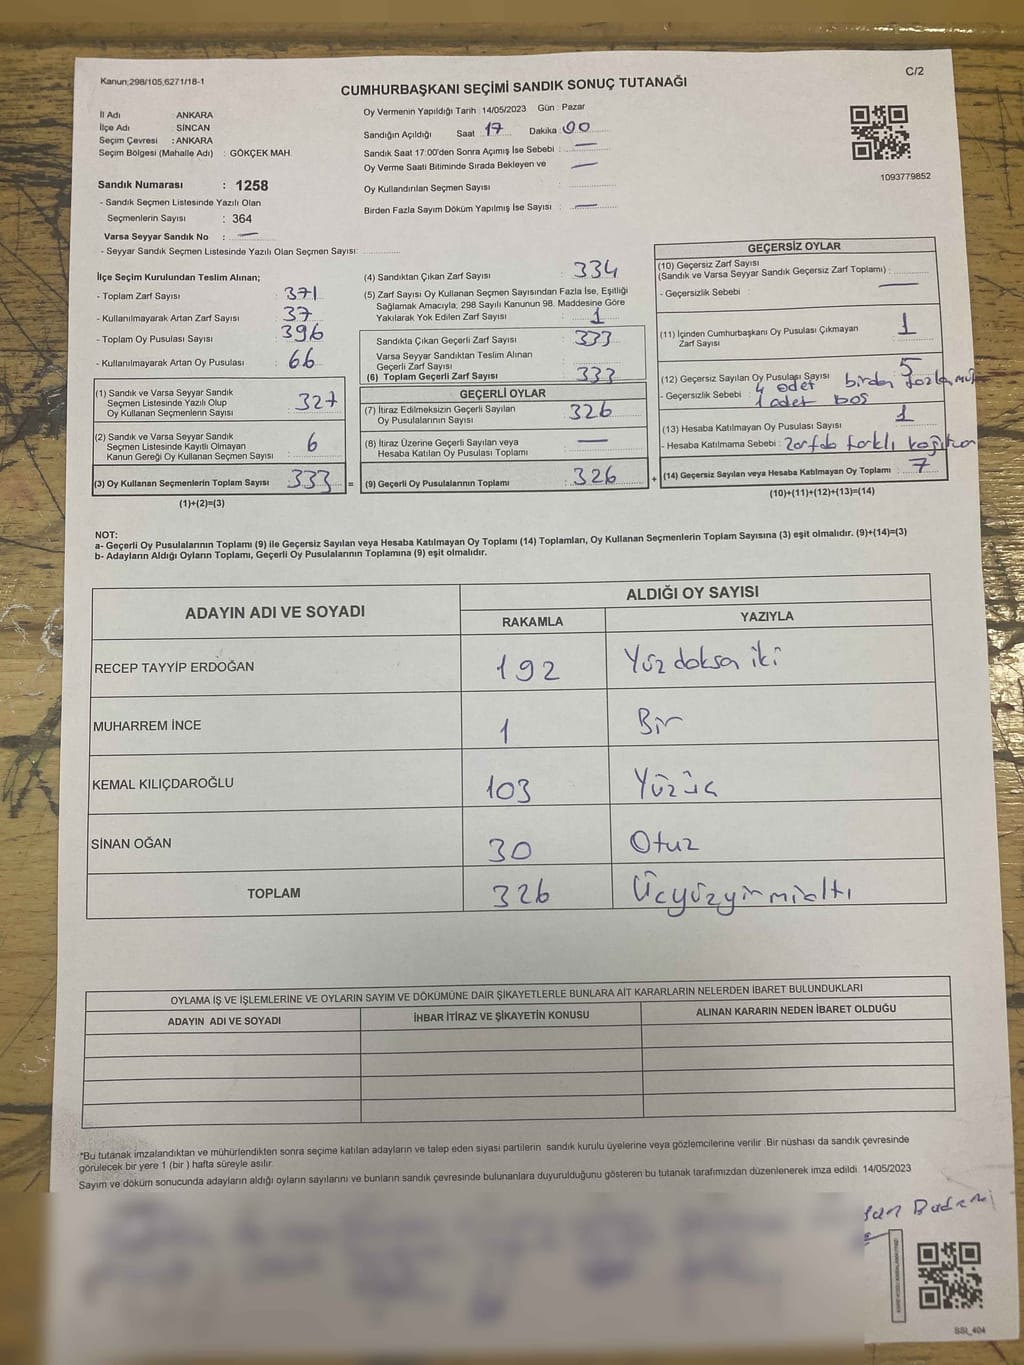 Kanun:298/105,6271/18-1
C/2
CUMHURBAŞKANI SEÇİMİ SANDIK SONUÇ TUTANAĞI
İl Adı : ANKARA
İlçe Adı : SİNCAN
Seçim Çevresi : ANKARA
Seçim Bölgesi (Mahalle Adı) : GÖKÇEK MAH.
Sandık Numarası : 1258
- Sandık Seçmen Listesinde Yazılı Olan
Seçmenlerin Sayısı : 364
Varsa Seyyar Sandık No : —
- Seyyar Sandık Seçmen Listesinde Yazılı Olan Seçmen Sayısı:
Oy Vermenin Yapıldığı Tarih : 14/05/2023 Gün : Pazar
Sandığın Açıldığı Saat 17 Dakika 00
Sandık Saat 17:00'den Sonra Açımış İse Sebebi : —
Oy Verme Saati Bitiminde Sırada Bekleyen ve —
Oy Kullandırılan Seçmen Sayısı
Birden Fazla Sayım Döküm Yapılmış İse Sayısı : —
1093779852
İlçe Seçim Kurulundan Teslim Alınan;
- Toplam Zarf Sayısı : 371
- Kullanılmayarak Artan Zarf Sayısı : 37
- Toplam Oy Pusulası Sayısı : 396
- Kullanılmayarak Artan Oy Pusulası : 66
(1) Sandık ve Varsa Seyyar Sandık
Seçmen Listesinde Yazılı Olup
Oy Kullanan Seçmenlerin Sayısı : 327
(2) Sandık ve Varsa Seyyar Sandık
Seçmen Listesinde Kayıtlı Olmayan
Kanun Gereği Oy Kullanan Seçmen Sayısı : 6
(3) Oy Kullanan Seçmenlerin Toplam Sayısı : 333 =
(1)+(2)=(3)
(4) Sandıktan Çıkan Zarf Sayısı : 334
(5) Zarf Sayısı Oy Kullanan Seçmen Sayısından Fazla İse, Eşitliği
Sağlamak Amacıyla, 298 Sayılı Kanunun 98. Maddesine Göre
Yakılarak Yok Edilen Zarf Sayısı : 1
Sandıkta Çıkan Geçerli Zarf Sayısı : 333
Varsa Seyyar Sandıktan Teslim Alınan
Geçerli Zarf Sayısı
(6) Toplam Geçerli Zarf Sayısı : 333
GEÇERLİ OYLAR
(7) İtiraz Edilmeksizin Geçerli Sayılan
Oy Pusulasının Sayısı : 326
(8) İtiraz Üzerine Geçerli Sayılan veya
Hesaba Katılan Oy Pusulası Toplamı : —
(9) Geçerli Oy Pusulalarının Toplamı : 326 +
GEÇERSİZ OYLAR
(10) Geçersiz Zarf Sayısı
(Sandık ve Varsa Seyyar Sandık Geçersiz Zarf Toplamı) : —
- Geçersizlik Sebebi :
(11) İçinden Cumhurbaşkanı Oy Pusulası Çıkmayan
Zarf Sayısı : 1
(12) Geçersiz Sayılan Oy Pusulası Sayısı : 5
- Geçersizlik Sebebi : 4 adet birden fazla
1 adet boş
(13) Hesaba Katılmayan Oy Pusulası Sayısı : 1
- Hesaba Katılmama Sebebi : farklı
(14) Geçersiz Sayılan veya Hesaba Katılmayan Oy Toplamı : 7
(10)+(11)+(12)+(13)=(14)
NOT:
a- Geçerli Oy Pusulalarının Toplamı (9) ile Geçersiz Sayılan veya Hesaba Katılmayan Oy Toplamı (14) Toplamları, Oy Kullanan Seçmenlerin Toplam Sayısına (3) eşit olmalıdır. (9)+(14)=(3)
b- Adayların Aldığı Oyların Toplamı, Geçerli Oy Pusulalarının Toplamına (9) eşit olmalıdır.
ADAYIN ADI VE SOYADI ALDIĞI OY SAYISI
RAKAMLA YAZIYLA
RECEP TAYYİP ERDOĞAN 192 Yüz doksan iki
MUHARREM İNCE 1 Bir
KEMAL KILIÇDAROĞLU 103 Yüzüç
SİNAN OĞAN 30 Otuz
TOPLAM 326 Üçyüzyirmialtı
OYLAMA İŞ VE İŞLEMLERİNE VE OYLARIN SAYIM VE DÖKÜMÜNE DAİR ŞİKAYETLERLE BUNLARA AİT KARARLARIN NELERDEN İBARET BULUNDUKLARI
ADAYIN ADI VE SOYADI İHBAR İTİRAZ VE ŞİKAYETİN KONUSU ALINAN KARARIN NEDEN İBARET OLDUĞU
*Bu tutanak imzalandıktan ve mühürlendikten sonra seçime katılan adayların ve talep eden siyasi partilerin sandık kurulu üyelerine veya gözlemcilerine verilir .Bir nüshası da sandık çevresinde
görülecek bir yere 1 (bir ) hafta süreyle asılır.
Sayım ve döküm sonucunda adayların aldığı oyların sayılarını ve bunların sandık çevresinde bulunanlara duyurulduğunu gösteren bu tutanak tarafımızdan düzenlenerek imza edildi. 14/05/2023
SSI_404